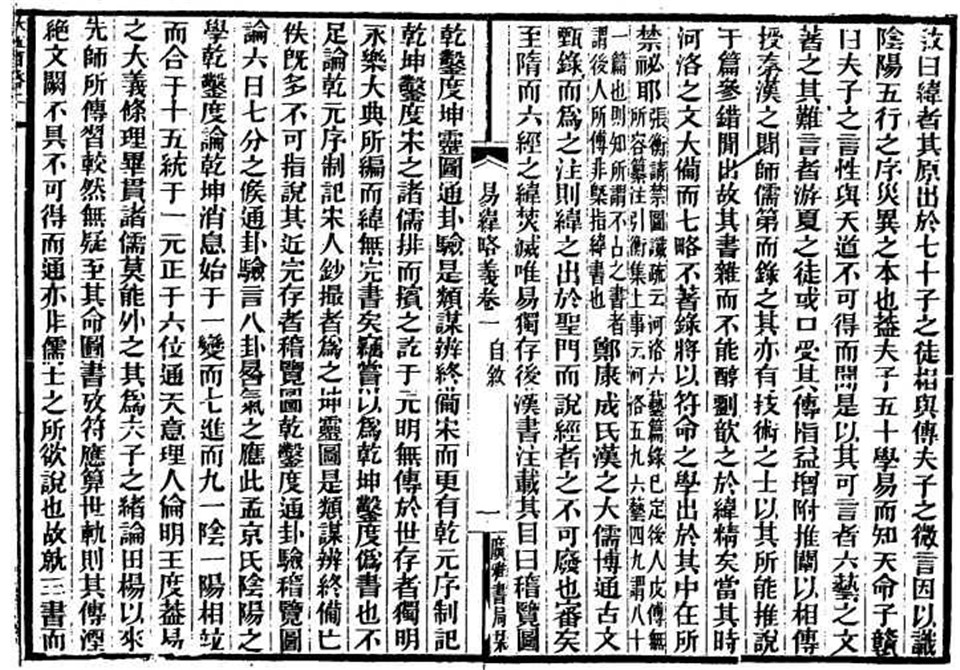 敘曰緯者其原出於七十子之徒相與傳夫子之微言因以識
陰陽五行之序災異之本也葢夫子五十學易而知天命子贛
曰夫子之言性與天道不可得而聞是以其可言者六藝之文
著之其難言者游夏之徒或口受其傳旨益增附推闡以相傳
授秦漢之閒師儒第而錄之其亦有技術之士以其所能推說
于篇參錯閒出故其書雜而不能醇劉歆之於緯精矣當其時
河洛之文大備而七略不著錄將以符命之學出於其中在所
禁祕耶張衡請禁圖讖疏云河洛六藝篇錄已定後人皮傅無
所容篡注引衡集上事云河洛五九六藝四九謂八十
一篇也則知所謂不占之書者
謂後人所傳非槩指緯書也鄭康成氏漢之大儒博通古文
甄錄而為之注則緯之出於聖門而說經者之不可廢也審矣
至隋而六經之緯焚滅唯易獨存後漢書注載其目曰稽覽圖
易緯略義卷一 自敘
一
廣雅書局栞
乾鑿度坤靈圖通卦驗是類謀辨終備宋而更有乾元序制記
乾坤鑿度宋之諸儒排而擯之訖于元明無傳於世存者獨明
永樂大典所編而緯無完書矣竊嘗以為乾坤鑿度偽書也不
足論乾元序制記宋人鈔撮者為之坤靈圖是類謀辨終備亡
佚既多不可指說其近完存者稽覽圖乾鑿度通卦驗稽覽圖
論六日七分之候通卦驗言八卦晷氣之應此孟京氏陰陽之
學乾鑿度論乾坤消息始于一變而七進而九一陰一陽相竝
而合于十五統于一元正于六位通天意理人倫明王度葢易
之大義條理畢貫諸儒莫能外之其為六子之緒論田楊以來
先師所傳習較然無疑至其命圖書攷符應算世軌則其傳湮
絕文闕不具不可得而通亦非儒士之所欲說也故就三書而